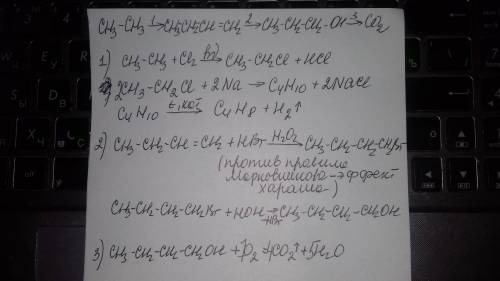 CH3-CH3 1→ CH3CH2CH=CH2 2→ CH3-CH2-CH2-OH 3→ CO2
1) CH3-CH3 + Cl2 hν→ CH3-CH2Cl + HCl
2CH3-CH2Cl + 2Na → C4H10 + 2NaCl
C4H10 t, kat→ C4H8 + H2↑
2) CH3-CH2-CH=CH2 + HBr H2O2→ CH3-CH2-CH2-CH2Br
(против правила
Марковникова → эффект
хараша)
CH3-CH2-CH2-CH2Br + HOH -HBr→ CH3-CH2-CH2-CH2OH
3) CH3-CH2-CH2-CH2OH + O2 → 4CO2↑ + 5H2O